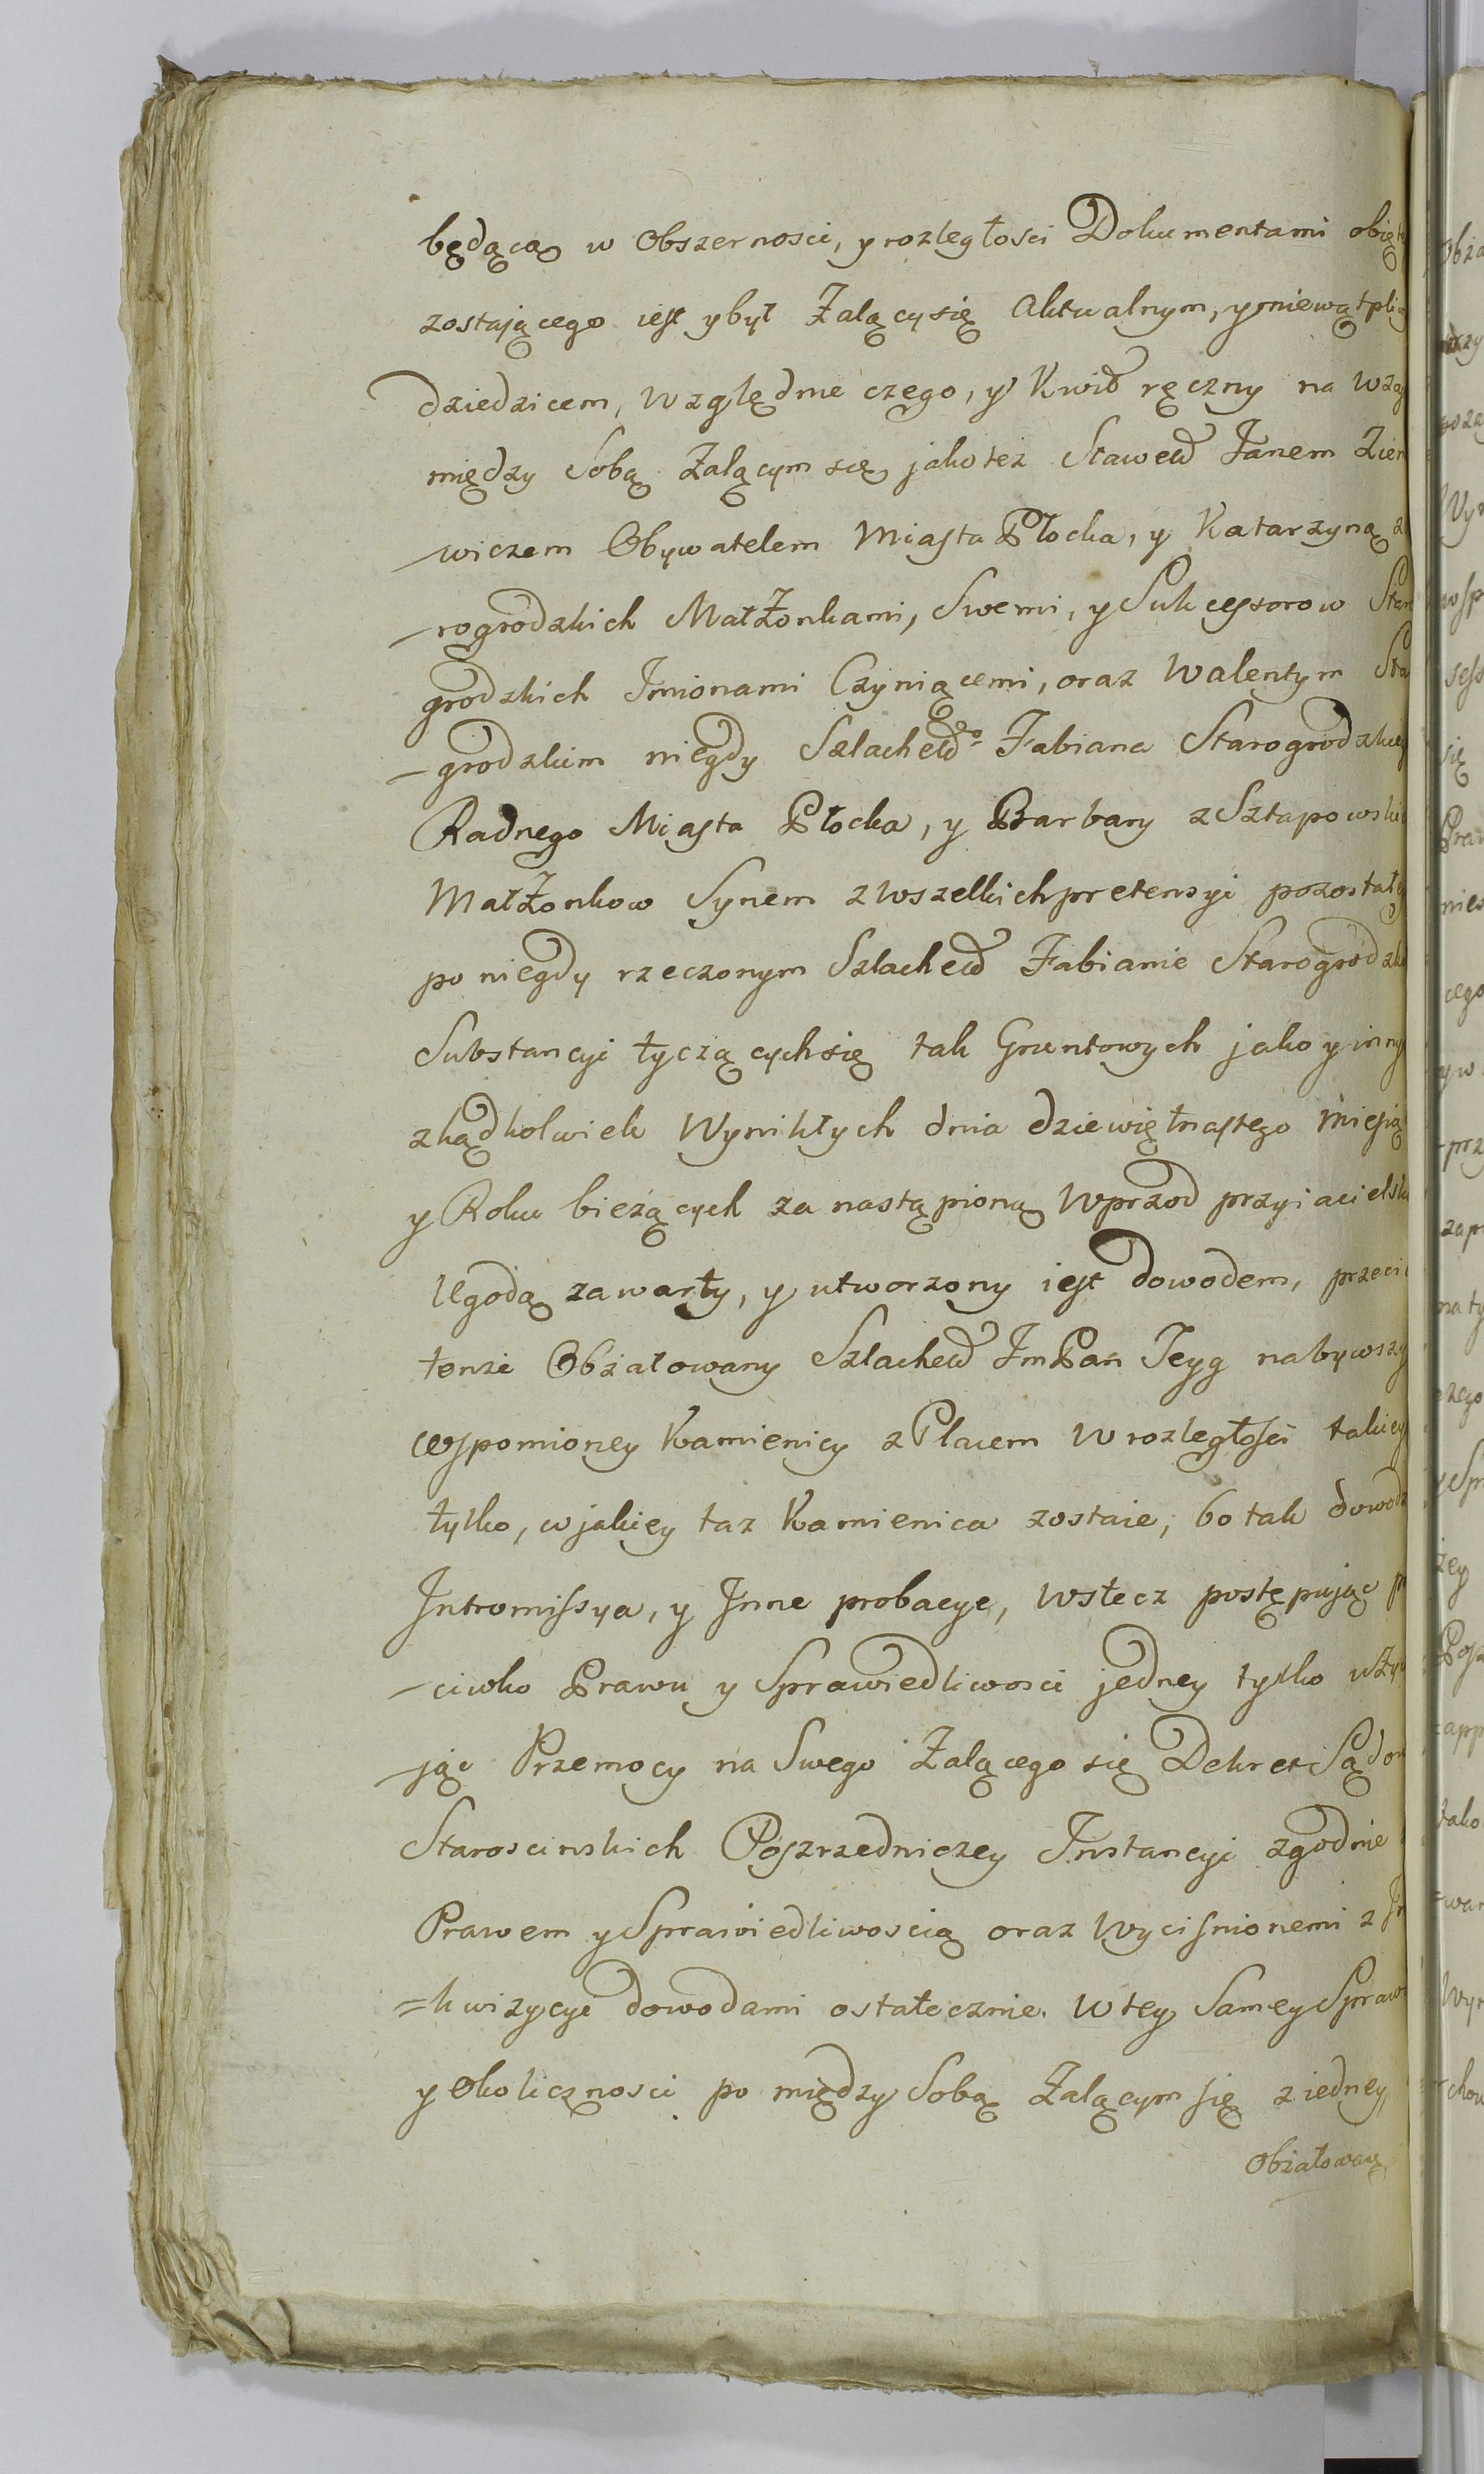 będącą w Obszernosci, y rozległości Dokumentami obię
zostającego iest y był Żalący się Aktualnym, y niewątpli
dziedzicem, względnie czego, y Kwit ręczny na wza
między Sobą Żalącym się jakoteż Sławetd Janem Zien
-wiczem Obywatelem Miasta Płocka, y Katarzyną z
-rogrodzkich Małżonkami, Swemi, y Sukcessorow Star
grodzkich Imionami Czyniącemi, oraz Walentym Sta
-grodzkim niegdy Szlachetdgo Fabiana Starogrodzkieg
Radnego Miasta Płocka, y Barbary z Sztapowski
Małżonkow Synem z wszelkich pretensyi pozostałey
po niegdy rzeczonym Szlachetd Fabianie Starogrodzk
Substancyi tyczących się tak Gruntowych jako y inny
zkądkolwiek Wynikłych dnia dziewiętnastego Miesią
y Roku bieżących za nastąpioną Wprzod przyiacielsk
Ugodą zawarty, y utworzony iest dowodem, przeci
tenże Obżałowany Szlachetd ImPan Jeyg nabywszy
wspomioney Kamienicy z Placem w rozległości takiey
tylko, w jakiey taz Kamienica zostaie, bo tak dowodz
Intromissya, y Inne probacye, wstecz postępując p
-ciwko Prawu y Sprawiedliwosci jedney tylko uży
-jąc Przemocy na Swego Żalącego się Dekret Sądow
Staroscinskich Poszrzedniczey Instancyi zgodnie
Prawem y Sprawiedliwoscią oraz Wyciśnionemi z In
=kwizycye dowodami ostatecznie. w tey Samey Spraw
y Okolicznosci po między Sobą Żalącym się z iedney,
Obżałowaną